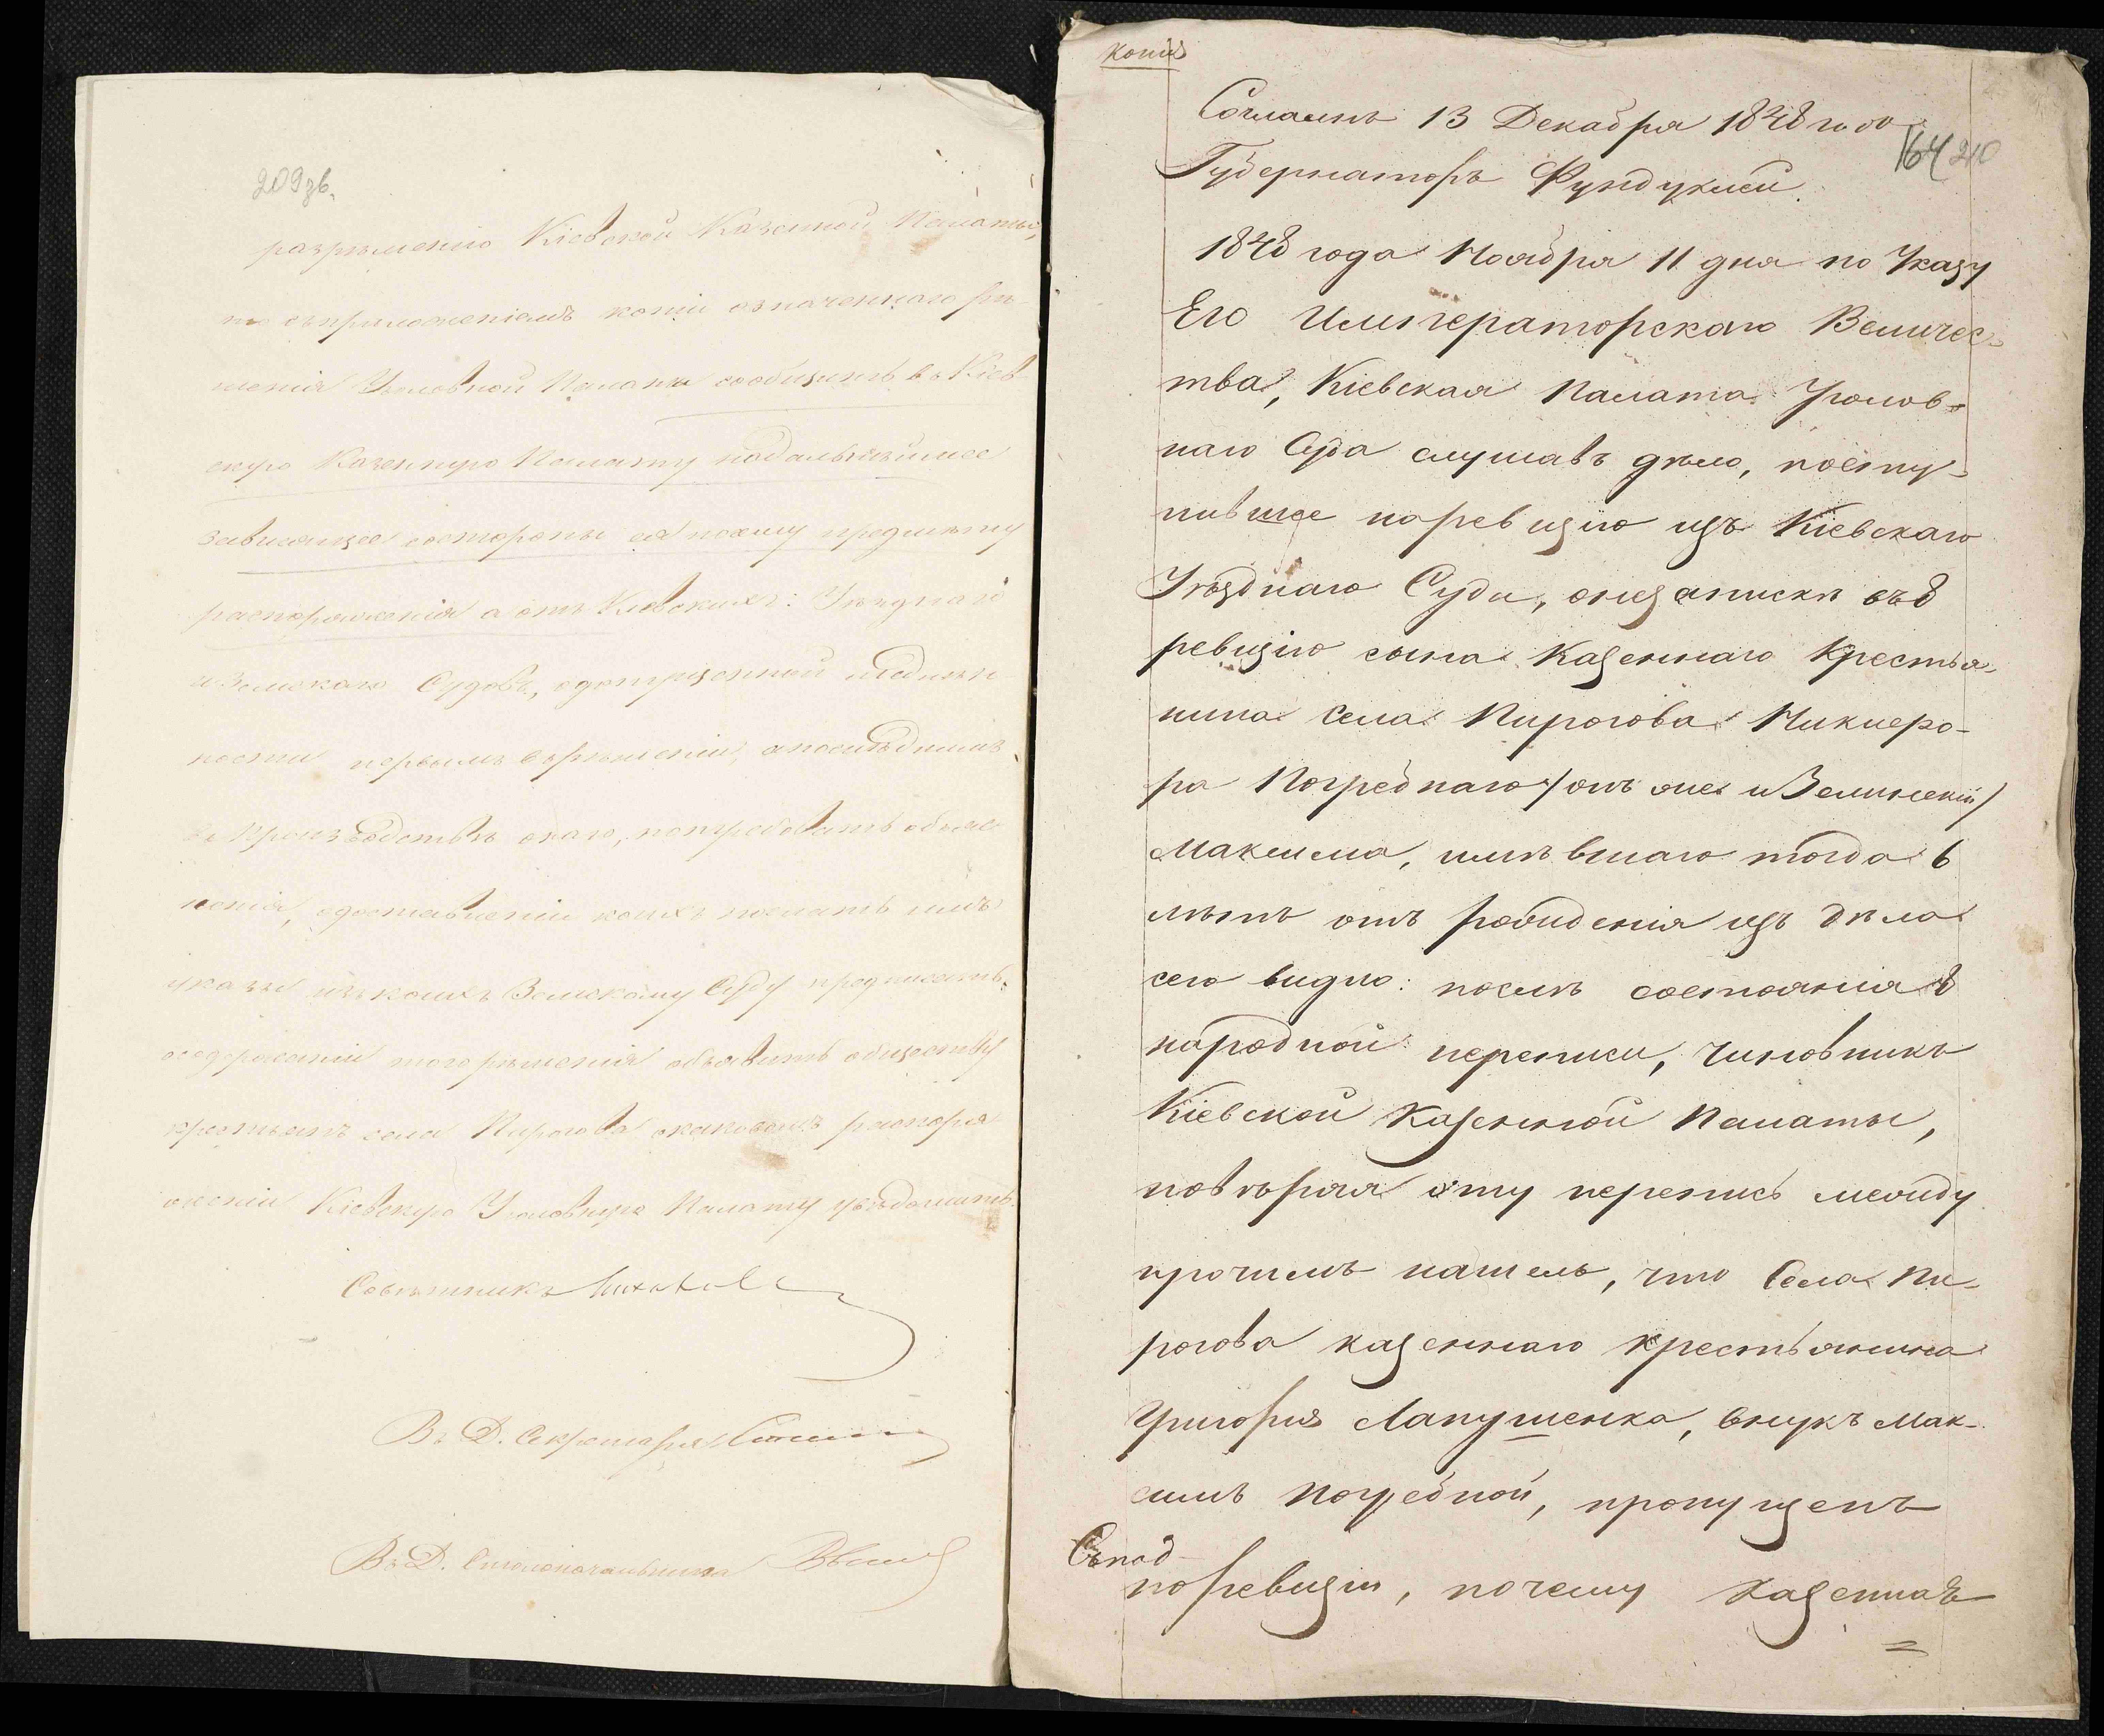 209зв.
разрѣшенію Кіевской Казенной Палаты,
то съ приложеніемъ копіи означеннаго рѣ-
шенія Уголовной Палаты сообщить въ Кіев
скую Казенную Палату къ дальнѣйшее
зависящее со стороны ея по сему предмету
распоряженія а отъ Кіевскихъ: Уѣзднаго
и Земскаго Судовъ, о допущенной медлен
ности первымъ въ рѣшеніи, а послѣднимъ
въ производствѣ онаго, потребовать объяс
ненія, о доставленіи коихъ послать имъ
указы изъ коихъ Земскому Суду предписать,
о содержаніи того рѣшенія объявить обществу
крестьянъ села Пирогова о каковомъ распоря
женіи Кіевскую Уголовную Палату увѣдомить.
Совѣтникъ
Въ Д. Секретаря
Въ Д. Столоначальника
копія
Согласенъ 13 Декабря 1848 года
164 210
Губернаторъ Фундуклей.
1848 года Ноября 11 дня по Указу
Его Императорскаго Величес-
тва, Кіевская Палата Уголов-
наго Суда слушавъ дѣло, посту-
пившее на ревизію изъ Кіевскаго
Уѣзднаго Суда, о незапискѣ въ 8
ревизію сына Казеннаго Крестья-
нина Села Пирогова Никифо-
ра Погребнаго /онъ же и Велинскій/
Максима, имѣвшаго тогда 6
лѣтъ отъ рожденія изъ дѣла
сего видно: послѣ состоянія 8
народной переписи, чиновникъ
Кіевской Казенной Палаты,
повѣряя эту перепись между
прочимъ нашелъ, что Села Пи-
рогова казеннаго крестьянина
Григорія Лапушенка, внукъ Мак-
симъ Погребной, пропущенъ
Съ под-
по ревизіи, почему Казенная